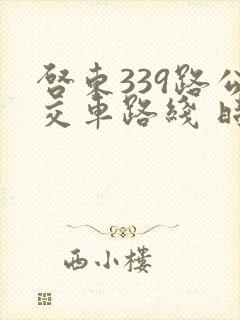 啓东339路公
交车路綫 时
西小樓